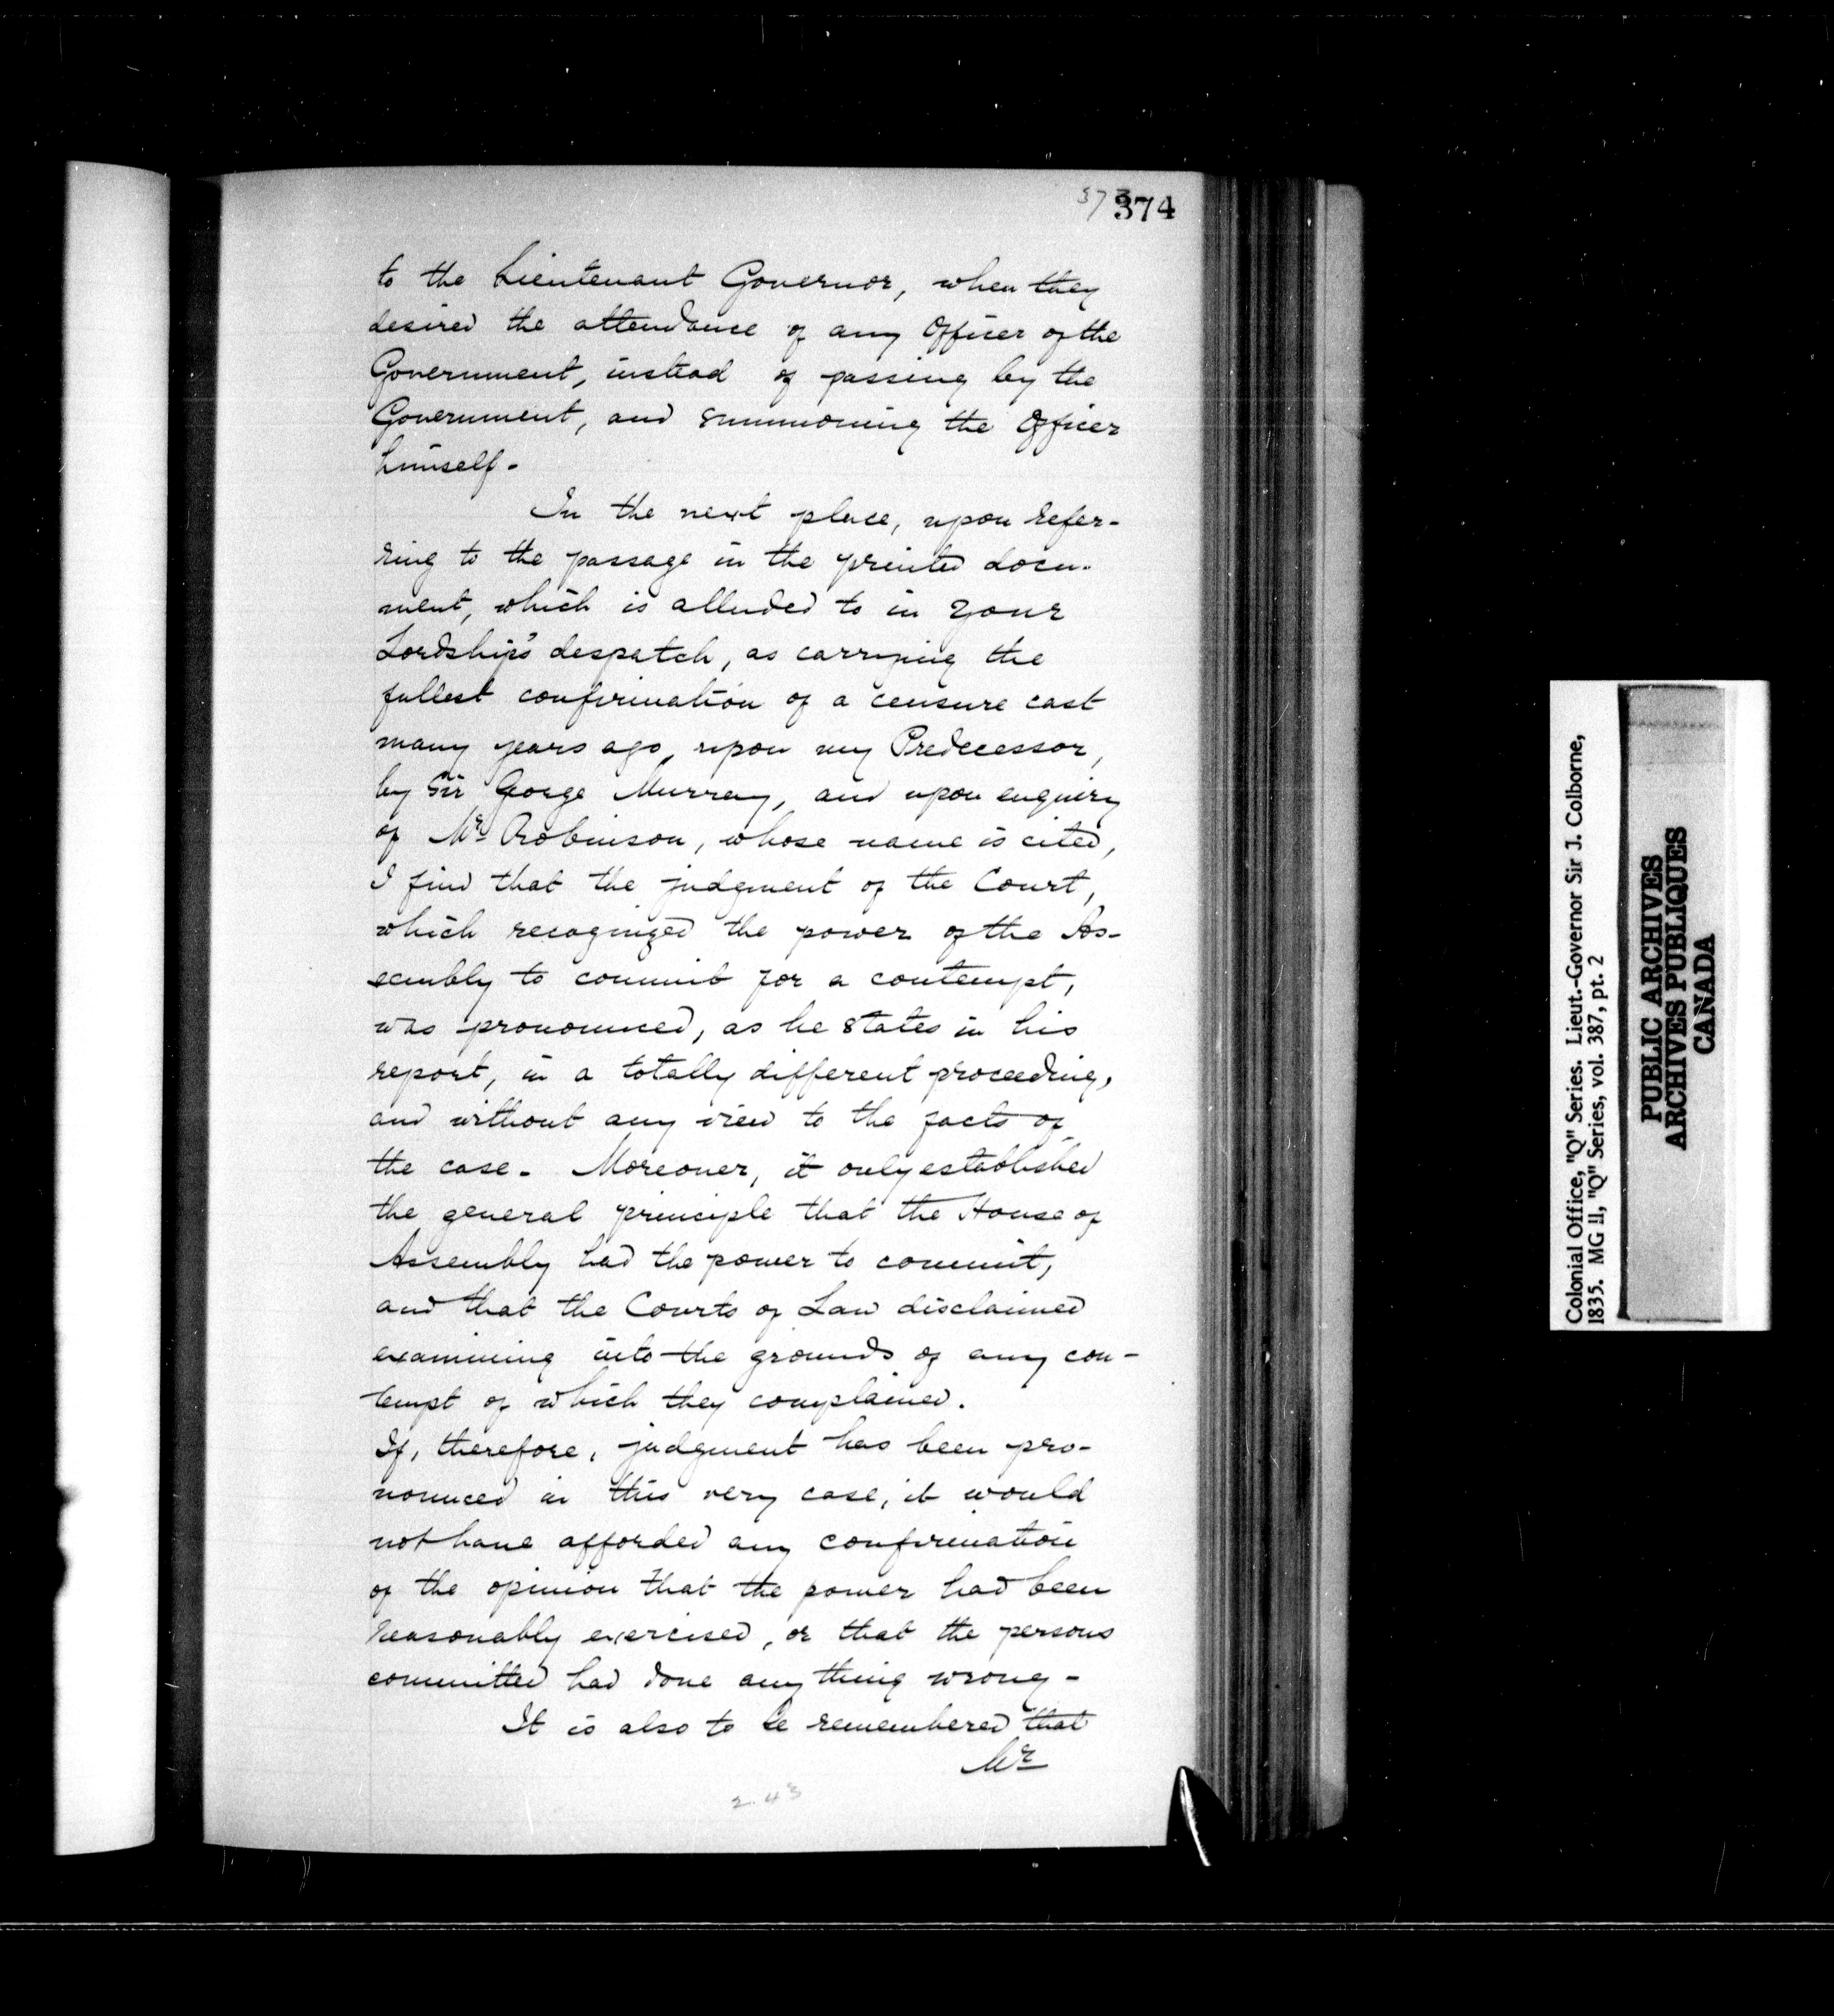 373
374
to the Lieutenant Governor, when they
desired the attendance of any Officer of the
Government, instead of passing by the
Government, and summoning the Officer
himself.
In the next place, upon refer-
ring to the passage in the printed docu-
ment, which is alluded to in your
Lordship's despatch, as carrying the
fullest confirmation of a censure cast
many years ago, upon my Predecessor,
by Sir George Murray, and upon enquiry
of Mr Robinson, whose name is cited,
I find that the judgment of the Court,
which recognized the power of the As-
sembly to commit for a contempt,
was pronounced, as he states in his
report, in a totally different proceeding,
and without any view to the facts of
the case. Moreover, it only established
the general principle that the House of
Assembly had the power to commit,
and that the Courts of Law disclaimed
examining into the grounds of any con-
tempt of which they complained.
If, therefore, judgment has been pro-
nounced in this very case, it would
not have afforded any confirmation
of the opinion that the power had been
reasonably exercised, or that the persons
committed had done any thing wrong -
It is also to be remembered that
Mr
2.43
Colonial Office, "Q" Series. Lieut.-Governor Sir J. Colborne,
1835. MG 11, "Q" Series, vol. 387, pt. 2
PUBLIC ARCHIVES
ARCHIVES PUBLIQUES
CANADA